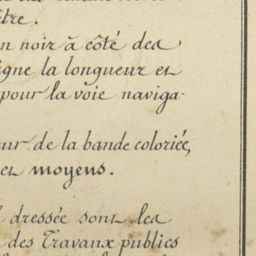 ître.
n noir à côté des
igne la longueur et
pour la voie naviga-
ur de la bande coloriée,
et moyens.
dressée sont les
des Travaux publics